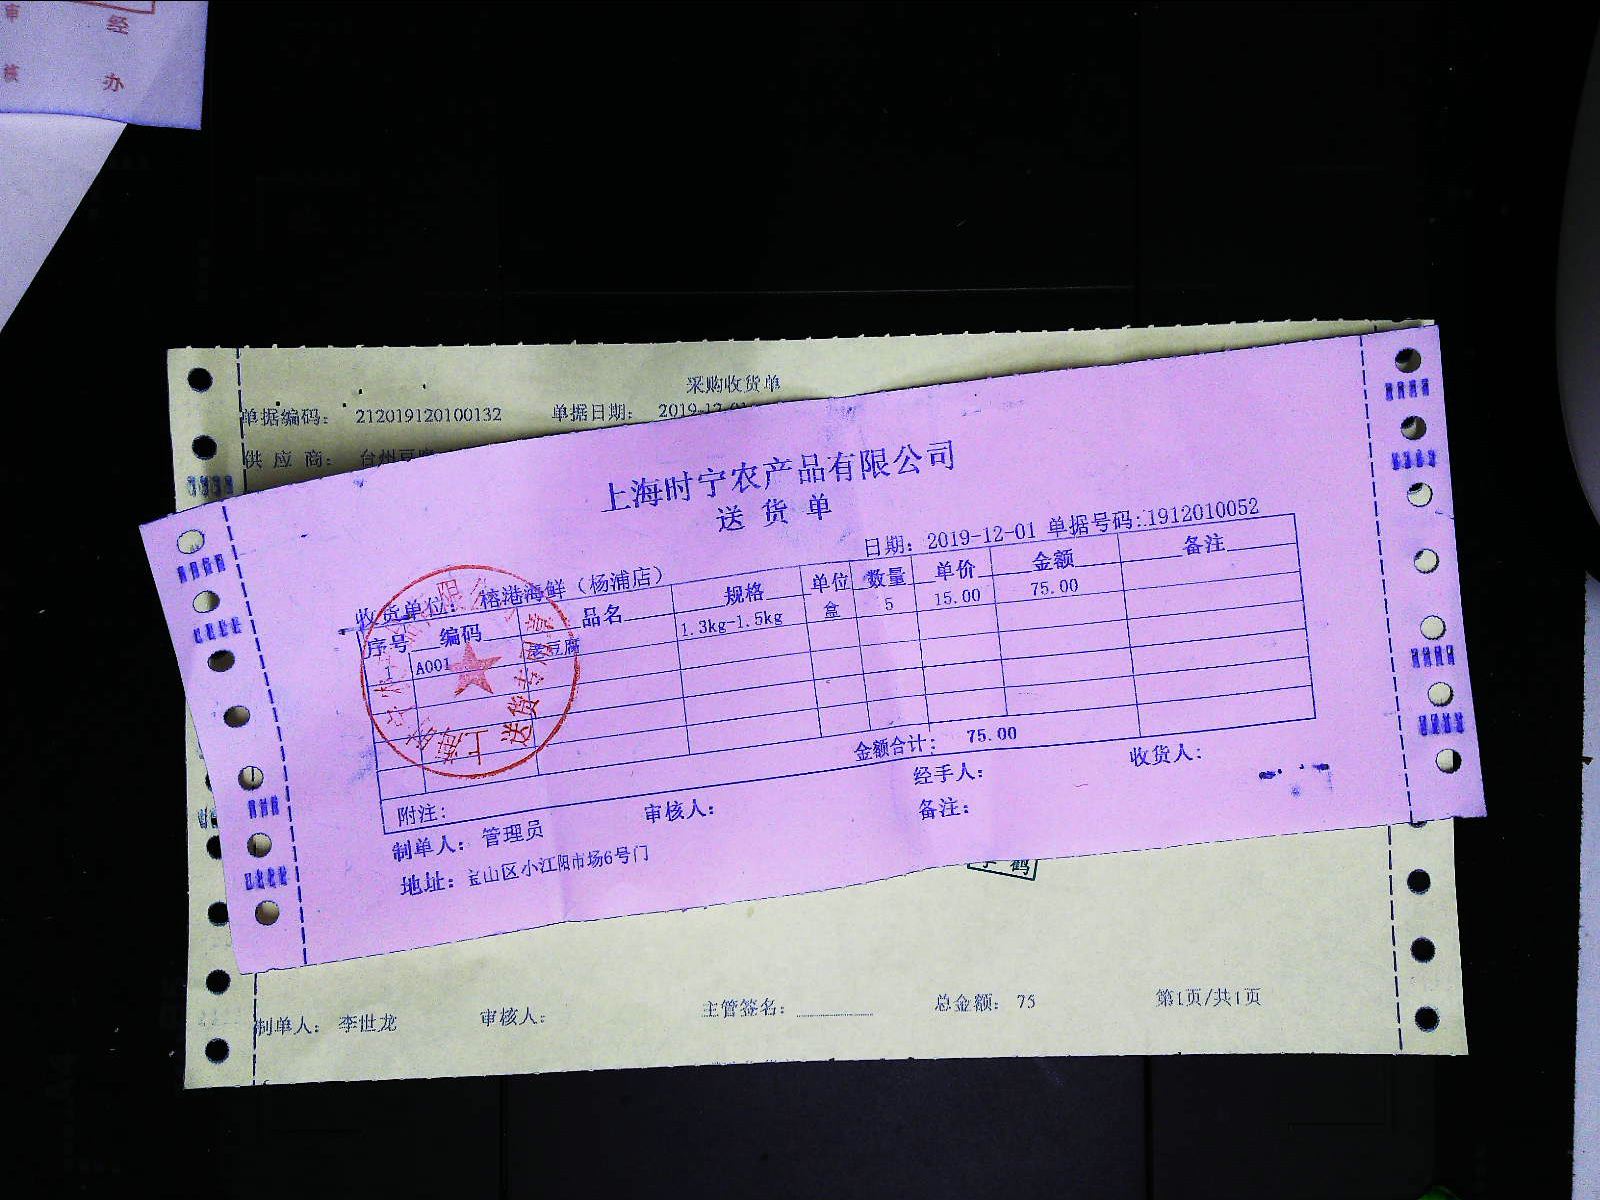 审 经
核 办
采购收货单
单据编码: 212019120100132 单据日期: 2019-12-01
供 应 商: 台州豆腐
上海时宁农产品有限公司
送 货 单
日期: 2019-12-01 单据号码:1912010052
收货单位: 榕港海鲜（杨浦店）
序号 编码 品名 规格 单位 数量 单价 金额 备注
1 A001 豆腐 1.3kg-1.5kg 盒 5 15.00 75.00
金额合计: 75.00
附注: 审核人: 经手人: 收货人:
制单人: 管理员 备注:
地址: 宝山区小江阳市场6号门
上海 送货专用章
鹤
制单人: 李世龙 审核人: 主管签名: 总金额: 75 第1页/共1页